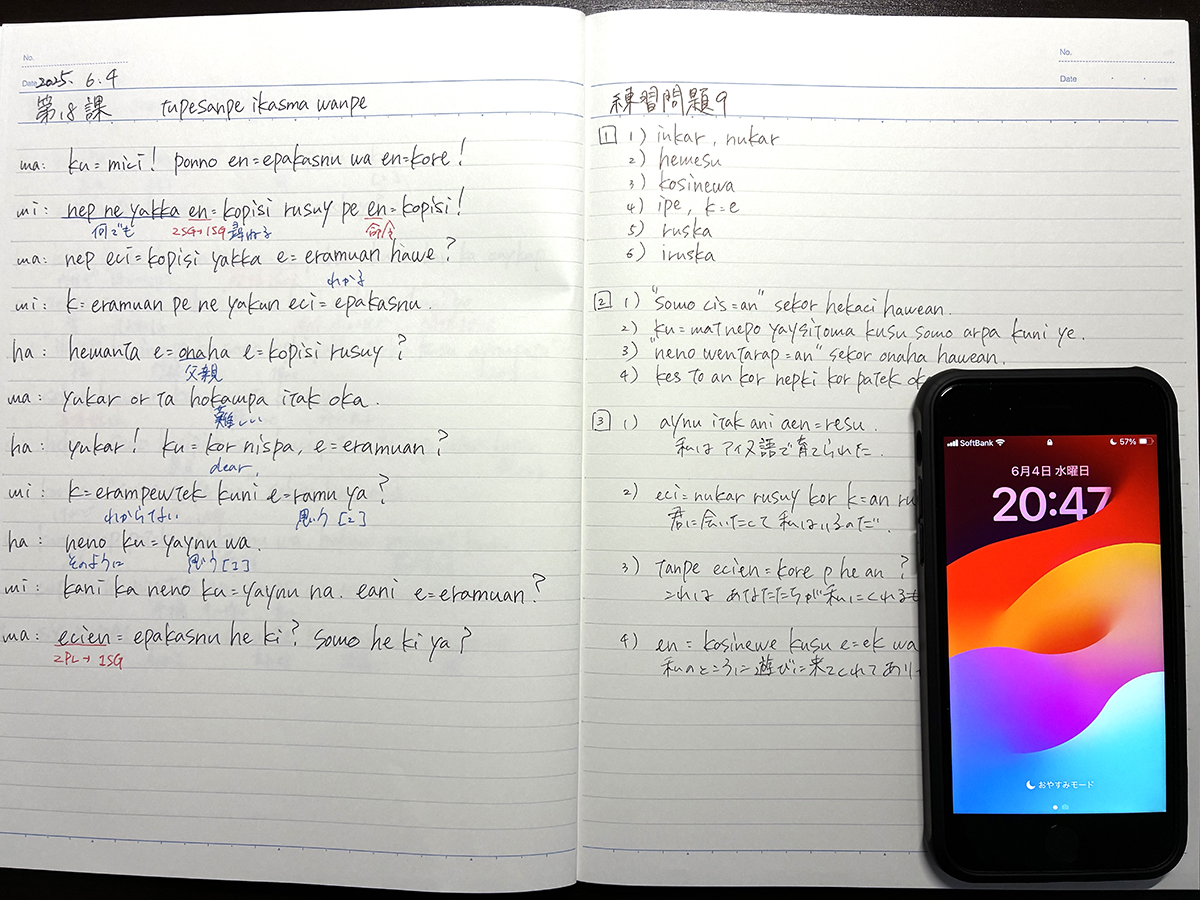 No.
Date 2025. 6. 4
第18課 tupesanpe ikasma wanpe
ma: ku=mici! ponno en=epakasnu wa en=kore!
mi: nep ne yakka en=kopisi rusuy pe en=kopisi!
何でも 2SG→1SG 尋ねる 命令
ma: nep eci=kopisi yakka e=eramuan hawe?
わかる
mi: k=eramuan pe ne yakun eci=epakasnu.
ha: hemanta e=onaha e=kopisi rusuy?
父親
ma: yukar or ta hokampa itak oka.
難しい
ha: yukar! ku=kor nispa, e=eramuan?
dear,
mi: k=erampewtek kuni e=ramu ya?
わからない 思う[2]
ha: neno ku=yaynu wa.
そのように 思う[1]
mi: kani ka neno ku=yaynu na. eani e=eramuan?
ma: ecien=epakasnu he ki? somo he ki ya?
2PL→1SG
No.
Date
練習問題9
1 1) inkar, nukar
2) hemesu
3) kosinewa
4) ipe, k=e
5) ruska
6) iruska
2 1) "somo cis=an" sekor hekaci hawean.
2) ku=matnepo yaysitoma kusu somo arpa kuni ye.
3) "neno wentarap=an" sekor onaha hawean.
4) kes to an kor nepki kor patek
3 1) aynu itak ani aen=resu.
私はアイヌ語で育てられた.
2) eci=nukar rusuy kor k=an
君に会いたくて私はいるのだ.
3) tanpe ecien=kore p he an?
これは あなたたちが私にくれる
4) en=kosinewe kusu e=ek wa
私のところに遊びに来てくれてあり
SoftBank 57%
6月4日 水曜日
20:47
おやすみモード